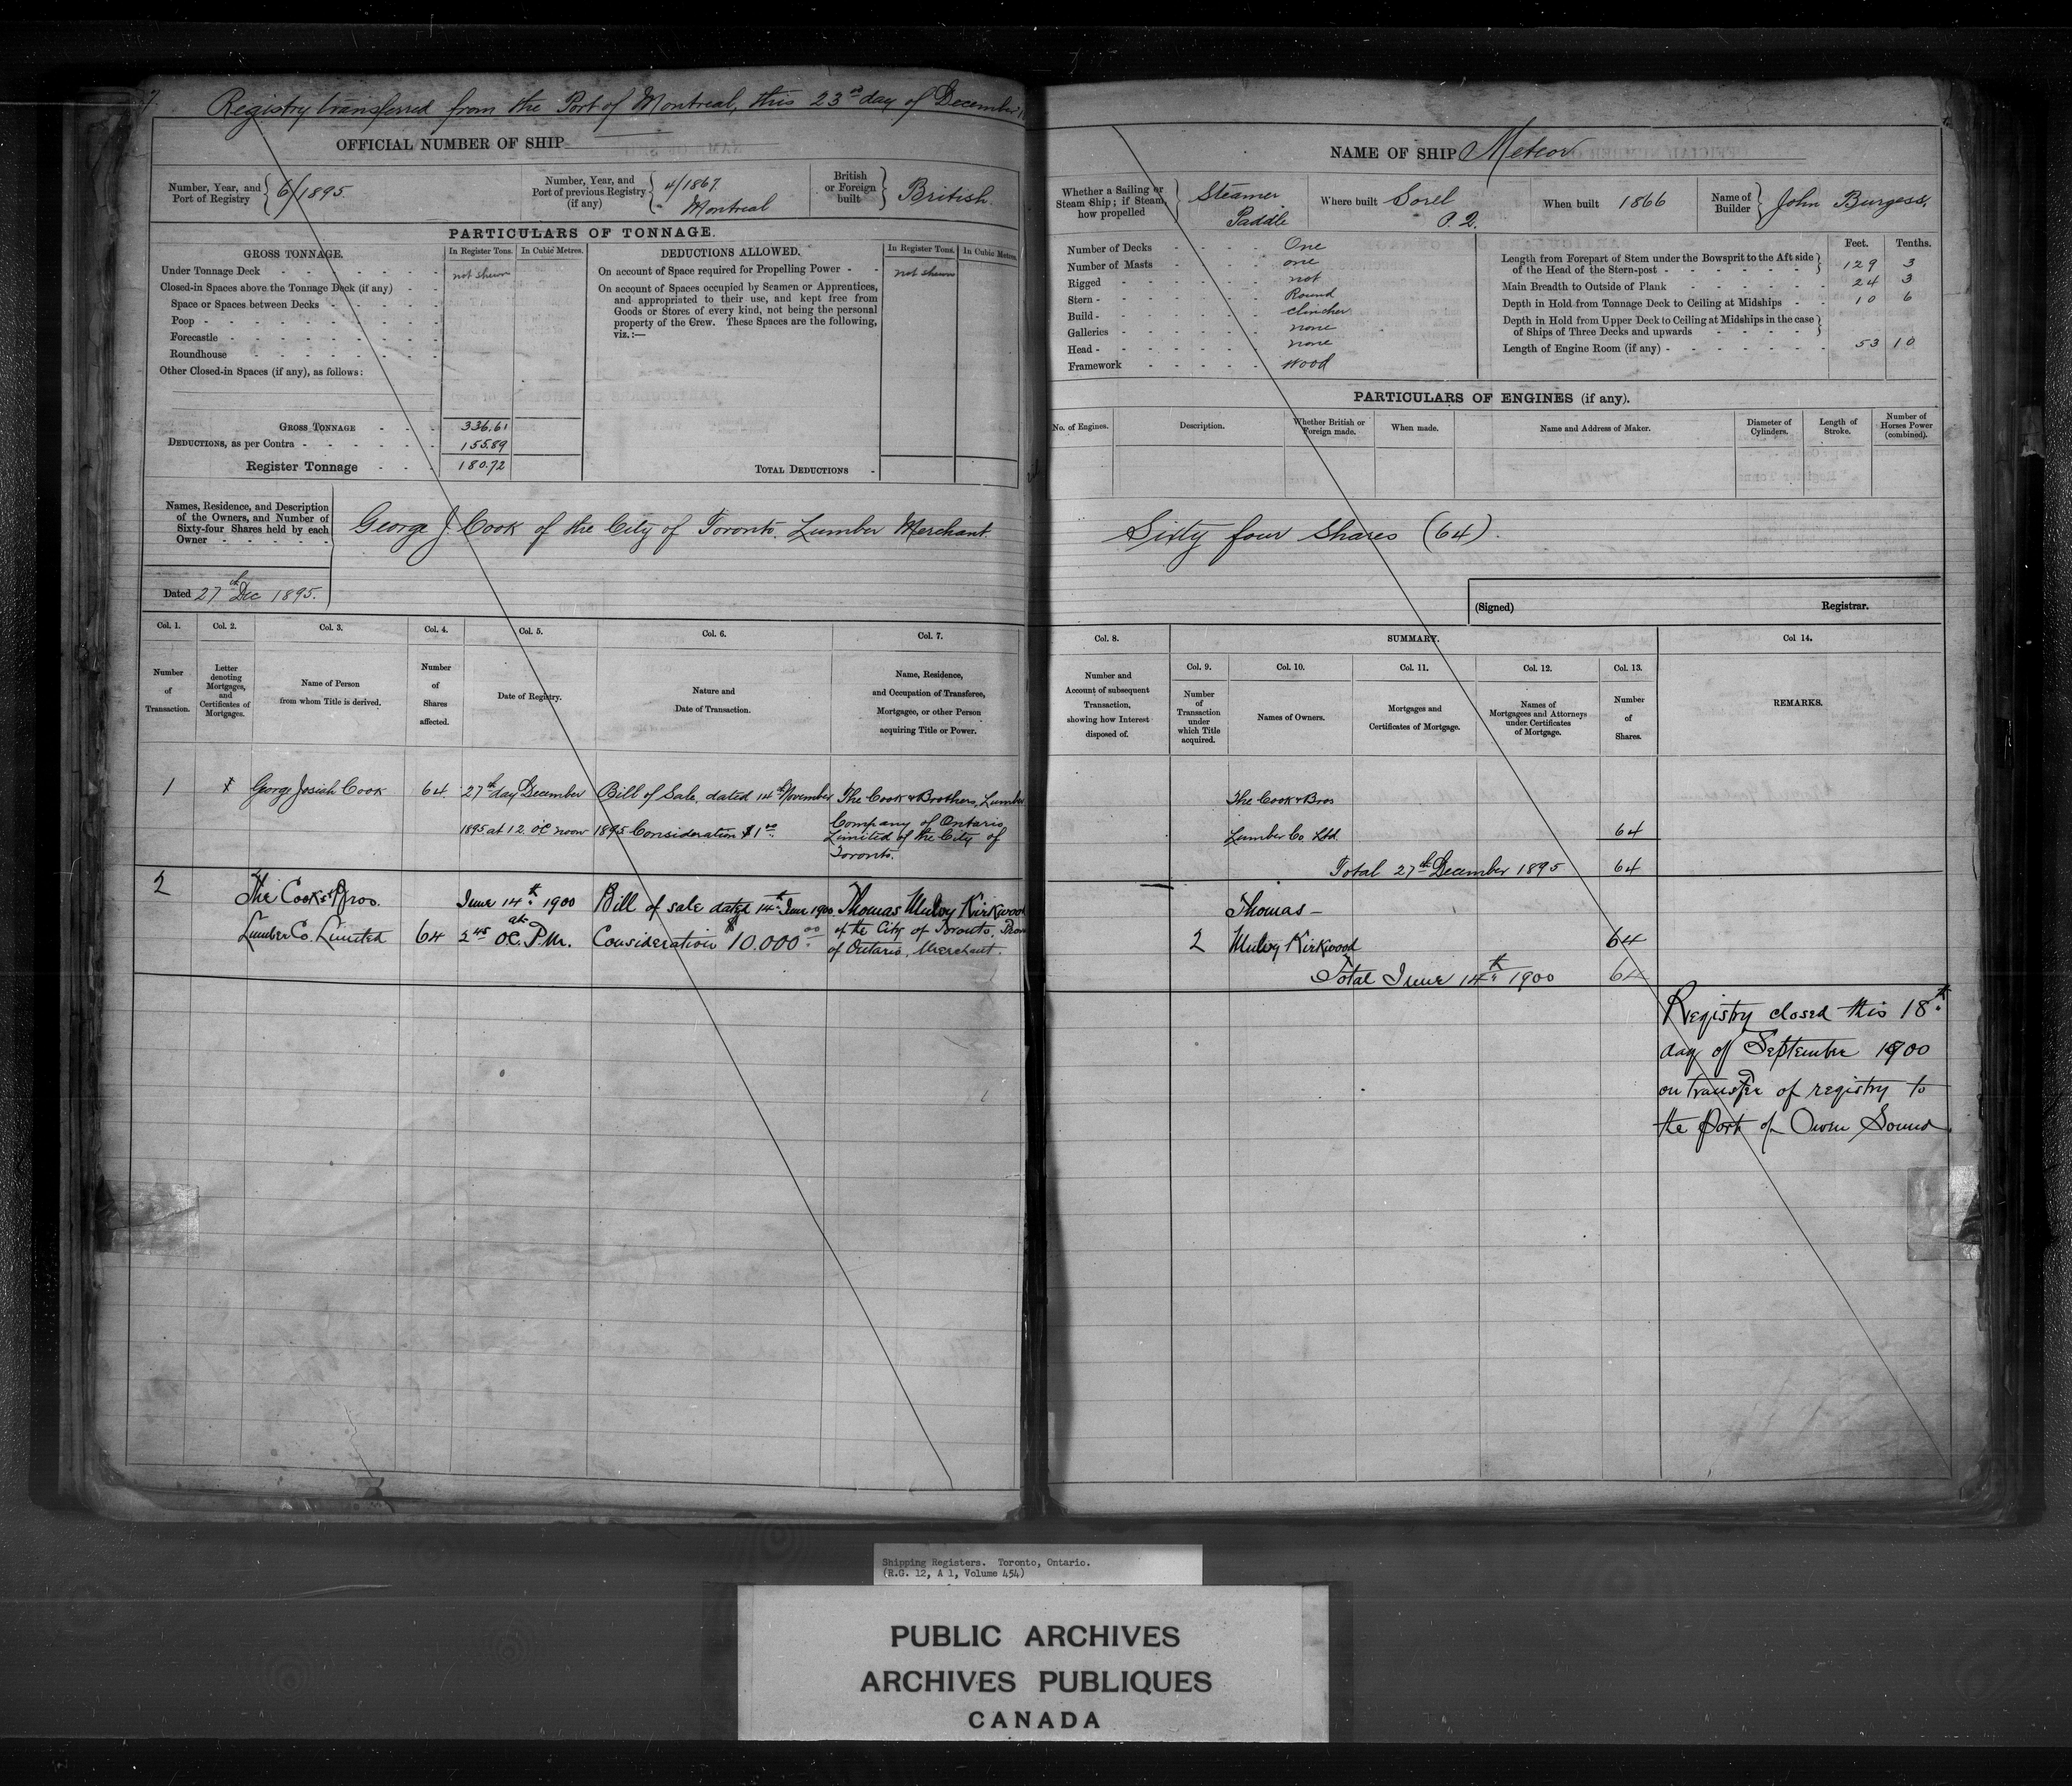 Registry transferred from the Port of Montreal, this 23rd day of December
OFFICIAL NUMBER OF SHIP
Number, Year, and Port of Registry 6/1895.
Number, Year, and Port of previous Registry (if any) 4/1867. Montreal
British or Foreign built British.
PARTICULARS OF TONNAGE.
GROSS TONNAGE. In Register Tons. In Cubic Metres.
Under Tonnage Deck not shewn
Closed-in Spaces above the Tonnage Deck (if any)
Space or Spaces between Decks
Poop
Forecastle
Roundhouse
Other Closed-in Spaces (if any), as follows:
GROSS TONNAGE 336.61
DEDUCTIONS, as per Contra 155.89
Register Tonnage 180.72
DEDUCTIONS ALLOWED. In Register Tons. In Cubic Metres.
On account of Space required for Propelling Power not shewn
On account of Spaces occupied by Seamen or Apprentices,
and appropriated to their use, and kept free from
Goods or Stores of every kind, not being the personal
property of the Crew. These Spaces are the following,
viz.:—
TOTAL DEDUCTIONS
Names, Residence, and Description
of the Owners, and Number of
Sixty-four Shares held by each
Owner
George J. Cook of the City of Toronto. Lumber Merchant.
Dated 27th Dec 1895.
Col. 1. Col. 2. Col. 3. Col. 4. Col. 5. Col. 6. Col. 7.
Number of Transaction.
Letter denoting Mortgages, and Certificates of Mortgages.
Name of Person from whom Title is derived.
Number of Shares affected.
Date of Registry.
Nature and Date of Transaction.
Name, Residence, and Occupation of Transferee, Mortgagee, or other Person acquiring Title or Power.
1 George Josiah Cook 64. 27th day December Bill of Sale, dated 14th November The Cook & Brothers, Lumber
1895 at 12. o'C noon 1895 Consideration $1.00 Company of Ontario
Limited of the City of
Toronto.
2 The Cook & Bros. June 14th 1900 Bill of sale dated 14th June 1900 Thomas Mulvy Kirkwood
Lumber Co. Limited 64 at 2.45 O.C. P.M. Consideration $10.000.00 of the City of Toronto, Prov
of Ontario, Merchant.
NAME OF SHIP Meteor
Whether a Sailing or Steam Ship; if Steam, how propelled Steamer Paddle
Where built Sorel P.Q.
When built 1866
Name of Builder John Burgess,
Number of Decks One
Number of Masts one
Rigged not
Stern Round
Build clincher
Galleries none
Head none
Framework wood
Feet. Tenths.
Length from Forepart of Stem under the Bowsprit to the Aft side of the Head of the Stern-post 129 3
Main Breadth to Outside of Plank 24 3
Depth in Hold from Tonnage Deck to Ceiling at Midships 10 6
Depth in Hold from Upper Deck to Ceiling at Midships in the case of Ships of Three Decks and upwards
Length of Engine Room (if any) 53 10
PARTICULARS OF ENGINES (if any).
No. of Engines. Description. Whether British or Foreign made. When made. Name and Address of Maker. Diameter of Cylinders. Length of Stroke. Number of Horses Power (combined).
Sixty four Shares (64).
(Signed) Registrar.
Col. 8. SUMMARY. Col 14.
Col. 9. Col. 10. Col. 11. Col. 12. Col. 13.
Number and Account of subsequent Transaction, showing how Interest disposed of.
Number of Transaction under which Title acquired.
Names of Owners.
Mortgages and Certificates of Mortgage.
Names of Mortgagees and Attorneys under Certificates of Mortgage.
Number of Shares.
REMARKS.
The Cook & Bros
Lumber Co. Ltd. 64
Total 27th December 1895 64
Thomas
2 Mulvy Kirkwood 64
Total June 14th 1900 64
Registry closed this 18th
day of September 1900
on transfer of registry to
the Port of Owen Sound
Shipping Registers. Toronto, Ontario.
(R.G. 12, A 1, Volume 454)
PUBLIC ARCHIVES
ARCHIVES PUBLIQUES
CANADA